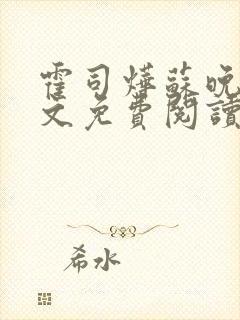 霍司燁蘇晚
文免費閱讀
希水